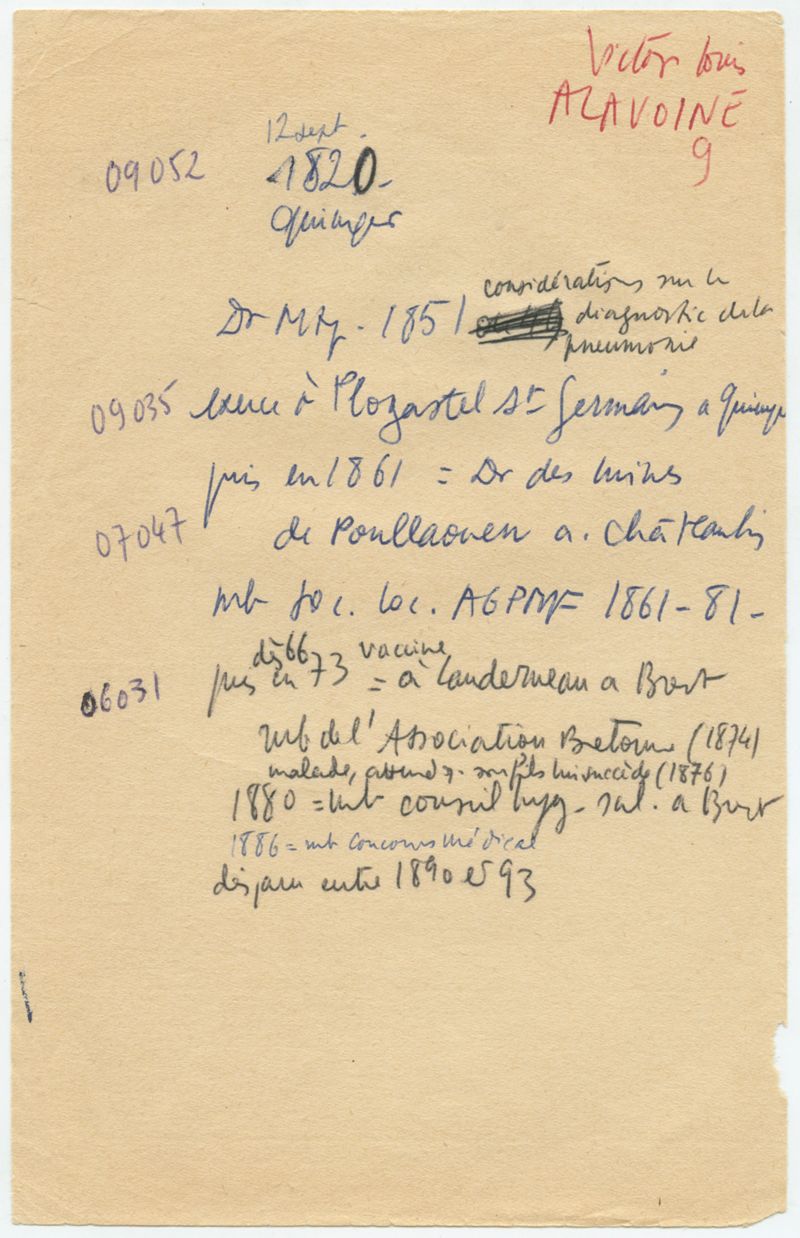 Victor Louis
ALAVOINE
9
12 sept.
09052 1820-
Quimper
Dr Mtp. 1851 considérations sur le
diagnostic de la
pneumonie
09035 exerce à Plogastel St Germain a Quimper
puis en 1861 = Dr des mines
07047 de Poullaouen a. Châteaulin
mb soc. loc. AGPMF 1861-81-
dès 66 vaccine
06031 puis en 73 = à Landerneau a Brest
mb de l'Association Bretonne (1874)
malade, son fils lui succède (1876)
1880 = mb conseil hyg. sal. a Brest
1886 = mb Concours Médical
disparu entre 1890 et 93